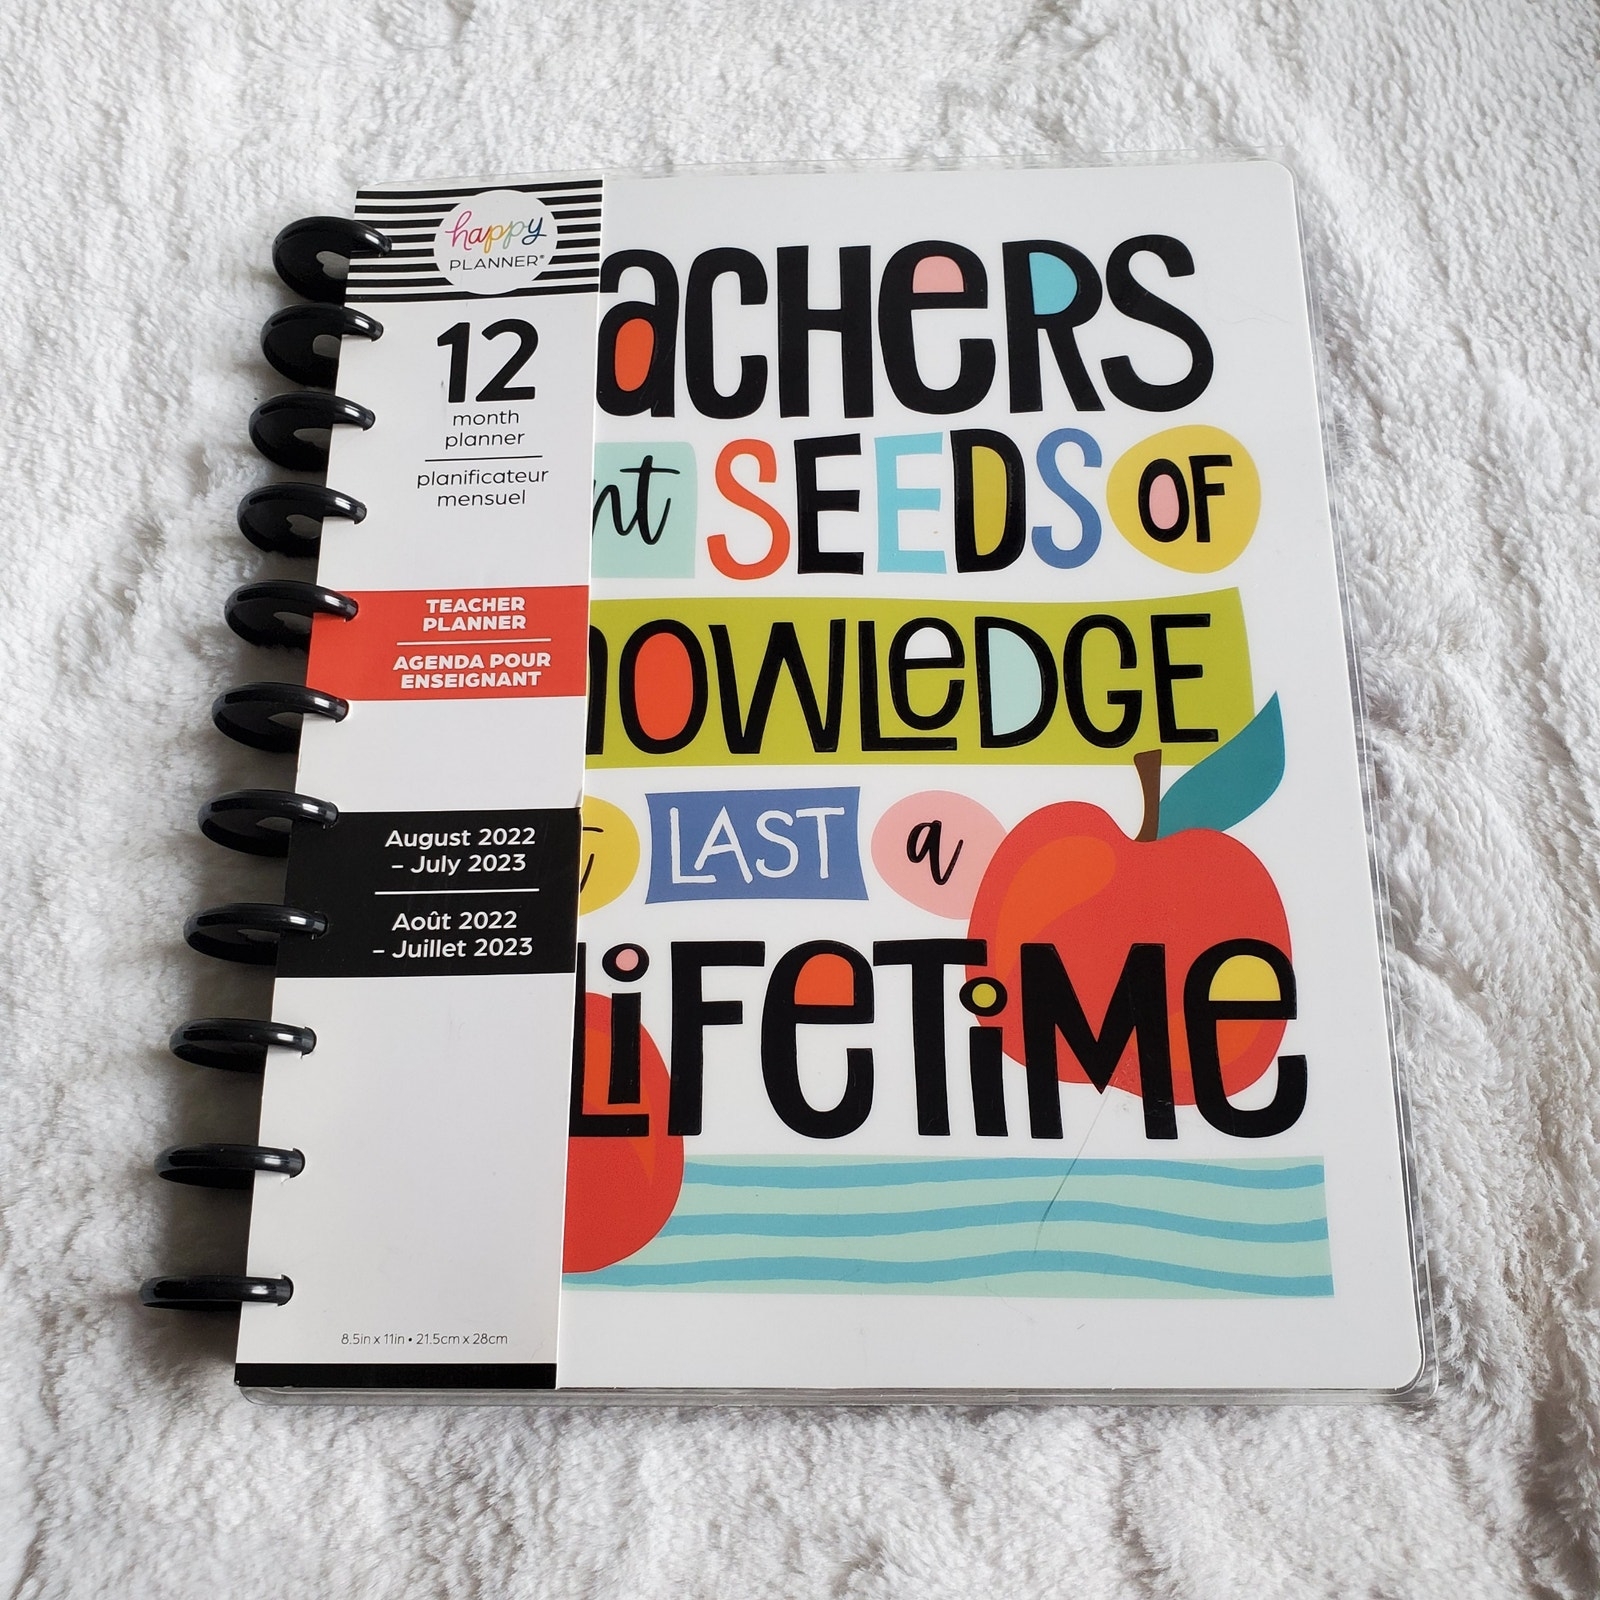 happy
PLANNER®
12
month
planner
planificateur
mensuel
TEACHER
PLANNER
AGENDA POUR
ENSEIGNANT
August 2022
– July 2023
Août 2022
– Juillet 2023
8.5in x 11in • 21.5cm x 28cm
achers
nt SEEDS OF
nowledge
LAST a
Lifetime